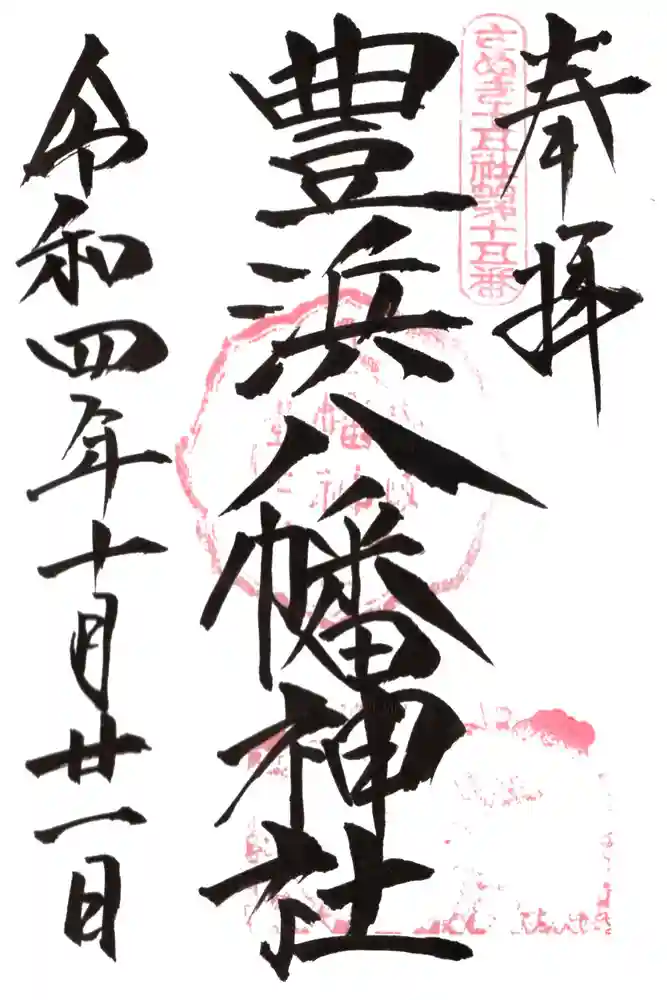 奉拝
さぬき十五社第十五番
豊浜八幡神社
令和四年十月廿一日